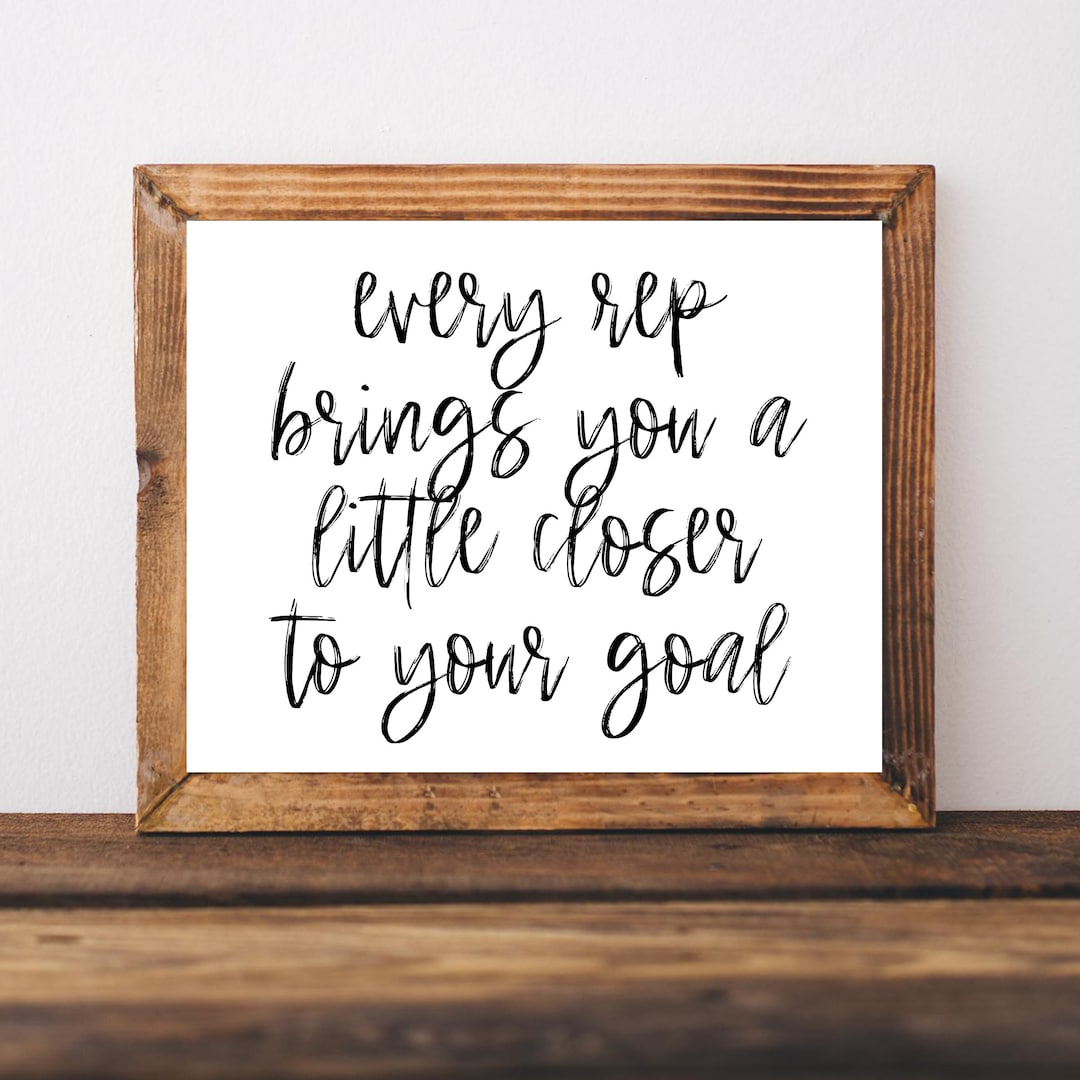 every rep
brings you a
little closer
to your goal